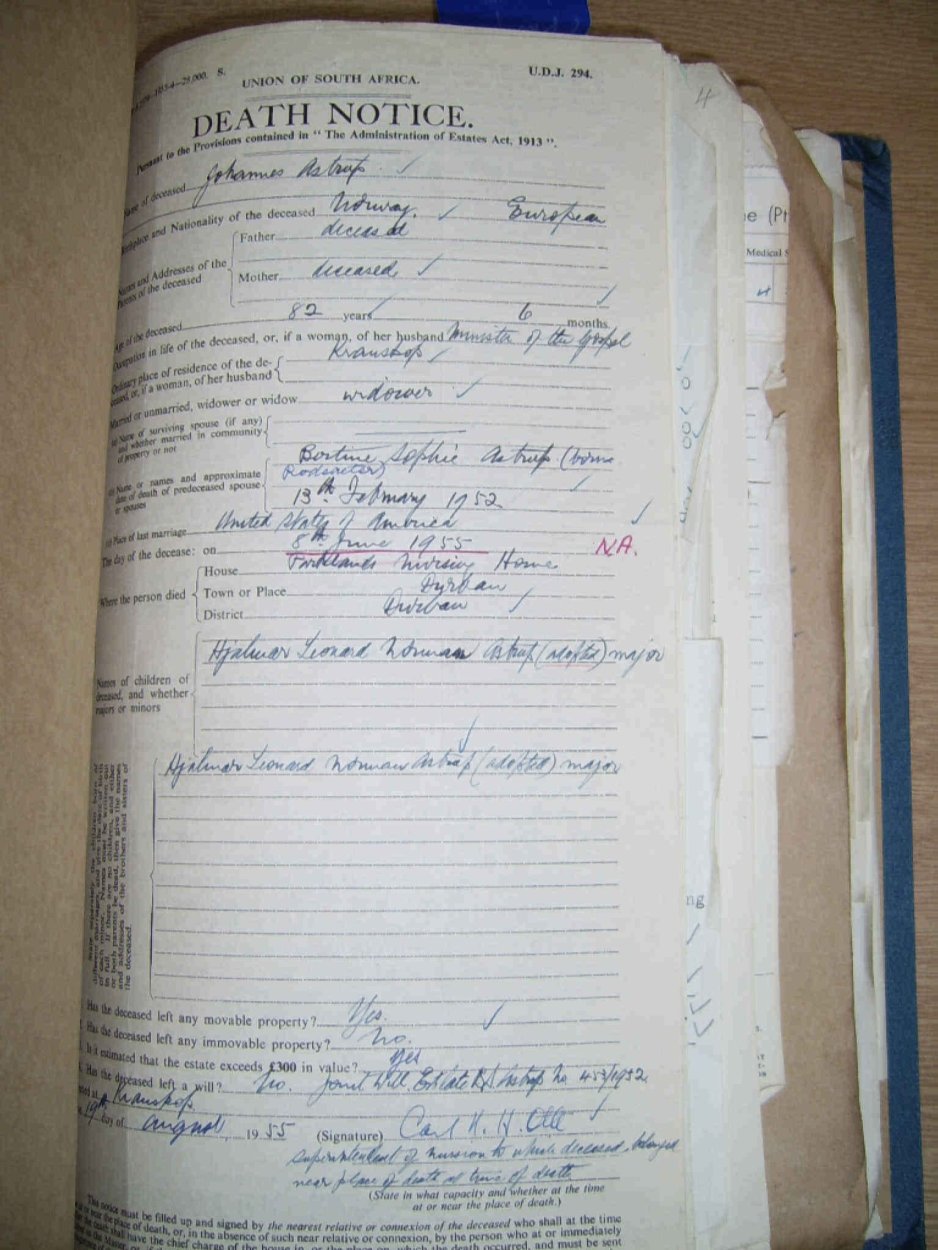 S.
UNION OF SOUTH AFRICA.
U.D.J. 294.
DEATH NOTICE.
Pursuant to the Provisions contained in "The Administration of Estates Act, 1913".
Name of deceased Johannes Astrup
Birthplace and Nationality of the deceased Norway. European
Names and Addresses of the Parents of the deceased
Father deceased
Mother deceased
Age of the deceased 82 years 6 months.
Occupation in life of the deceased, or, if a woman, of her husband Minister of the Gospel
Ordinary place of residence of the deceased, or, if a woman, of her husband Kranskop
Married or unmarried, widower or widow widower
(a) Name of surviving spouse (if any) and whether married in community of property or not
(b) Name or names and approximate date of death of predeceased spouse or spouses
Sophie Astrup (borne
13th February 1952
(c) Place of last marriage United States of America
The day of the decease: on 8th June 1955 N.A.
Where the person died
House Parklands Nursing Home
Town or Place Durban
District Durban
Names of children of deceased, and whether majors or minors
Hjalmar Leonard Norman Astrup (adopted) major
Hjalmar Leonard Norman Astrup (adopted) major
of each minor. Names must be written out
in full. If there are no children, and either
or both parents be dead, then give the names
and addresses of the brothers and sisters of
the deceased.
Has the deceased left any movable property? Yes.
Has the deceased left any immovable property? No.
Is it estimated that the estate exceeds £300 in value? Yes
Has the deceased left a will? No. Joint Will Estate Astrup No 453/1952
Dated at Kranskop
19th day of August 1955 (Signature) Carl
superintendent of mission to which deceased belonged
near place of death at time of death
(State in what capacity and whether at the time
at or near the place of death.)
This notice must be filled up and signed by the nearest relative or connexion of the deceased who shall at the time
or near the place of death, or, in the absence of such near relative or connexion, by the person who at or immediately
the death shall have the chief charge of the house in, or the place on, which the death occurred, and must be sent
4
Medical
ng